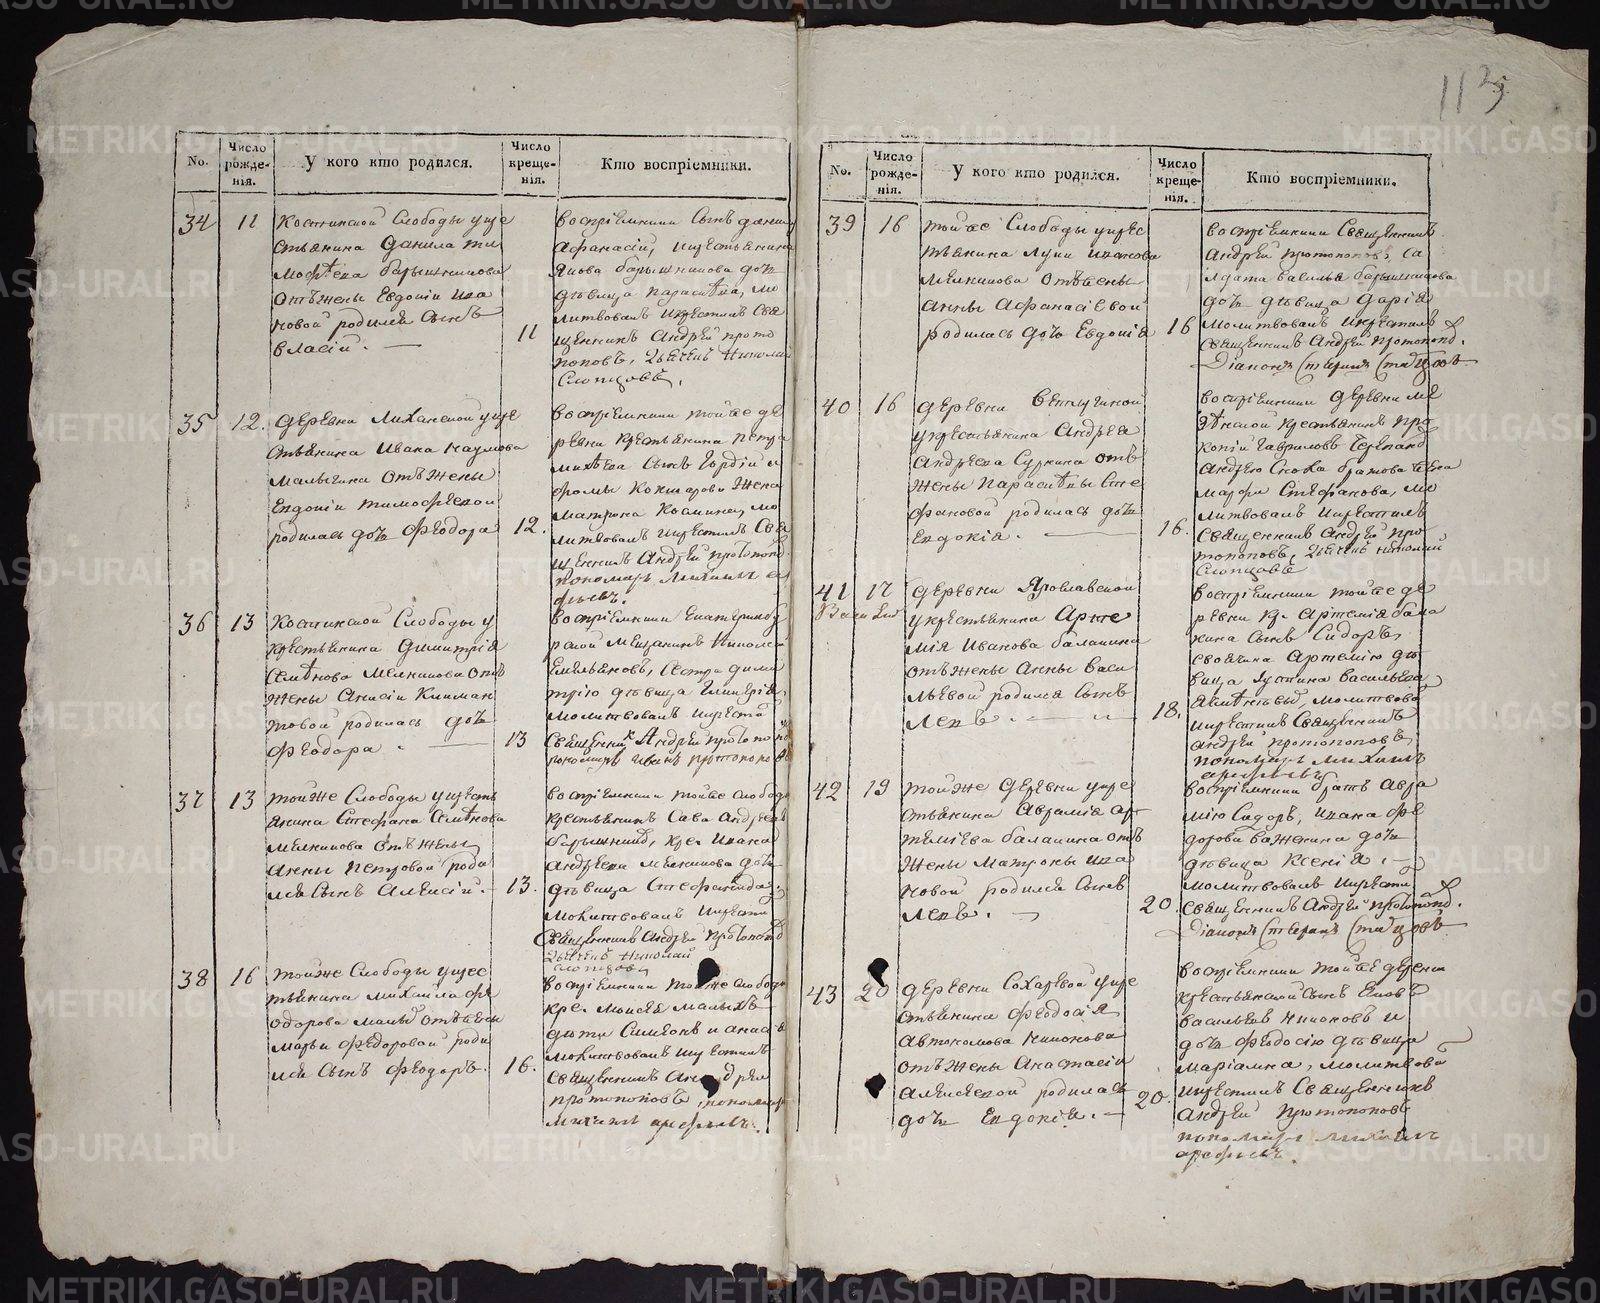 113
No.
Число рожде-нія.
У кого кто родился.
Число креще-нія.
Кто воспріемники.
34
11
Костинской Слободы укре
стьянина Данила ти
мофѣева барышникова
отъ жены Евдокіи ива
новой родился Сынъ
Власій.
11
Воспріемники Сынъ данилы
Афанасій, икрестьянина
Якова барышникова дочь
дѣвица параскѣва, мо
литвовалъ икрестилъ Свя
щенникъ Андрей прото
поповъ, Дьячекъ Николай
Слопцовъ.
35
12.
деревни Лиханской укре
стьянина Ивана Наумова
Малыгина отъ жены
Евдокіи тимофѣевой
родилась дочь Феодора
12.
Воспріемники тойже де
ревни крестьянина петра
михѣева Сынъ Гордій и
фомы Кокшарова Жена
Матрона Космина, мо
литвовалъ икрестилъ Свя
щенникъ Андрей протопопо.
пономарь Михаилъ аре
фьевъ.
36
13
Костинской Слободы у
крестьянина Димитрія
Семѣнова Мелкишова отъ
жены Анисіи Климан
товой родилась дочь
Феодора.
13
Воспріемники Екатеринбу
рской Мещанинъ Николай
Емельяновъ, Сестра дими
трію дѣвица Гликерія,
молитвовалъ икрести
Священникъ Андрей протопопо
пономарь Иванъ протопоповъ
37
13
тойже Слободы укресть
янина Стефана Семѣнова
Мелкишова отъ жены
Анны Петровой роди
лся Сынъ Алексій.
13.
Воспріемники тойже слободы
крестьянинъ Сава Андреевъ
барышниковъ, кре. Ивана
Андреева Мелкишова дочь
дѣвица Стефанида,
Молитвовалъ икрести
Священникъ Андрей протопопо
Дьячекъ Николай
Слопцовъ
38
16
тойже Слободы укрес
тьянина Михайла Фе
одорова Малы отъжены
Марьи Федоровой роди
лся Сынъ Феодоръ.
16.
Воспріемники тойже слободы
кре. Моисея Малыхъ
дѣти Симеонъ и анаста
Молитвовалъ икрестилъ
Священникъ Андрей
протопоповъ, пономарь
Михаилъ арефьевъ.
No.
Число рожде-нія.
У кого кто родился.
Число креще-нія.
Кто воспріемники.
39
16
тойже Слободы укрес
тьянина Луки иванова
Мелкишова отъжены
Анны Афанасіевой
родилась дочь Евдокія
16
Воспріемники Священникъ
Андрей протопоповъ, Са
лдата Василья барышникова
дочь дѣвица Дарія
молитвовалъ икрестилъ
Священникъ Андрей протопопо.
40
16
деревни
укрестьянина Андрея
Андреева Суркина отъ
жены Параскѣвы Сте
фановой родилась дочь
Евдокія.
16.
Воспріемники деревни
крестьянинъ про
копій Гавриловъ
Марфа Стефанова, мо
литвовалъ икрестилъ
Священникъ Андрей про
топоповъ, Дьячекъ Николай
Слопцовъ
41
17
деревни Ярославской
укрестьянина Арте
мія Иванова балакина
отъжены Анны Васи
льевой родился Сынъ
Левъ.
18.
Воспріемники тойже де
ревни Кр. Артемія бала
кина Сынъ Сидоръ,
Своячина Артемію дѣ
вица Устина Васильева,
молитвова
икрестилъ Священникъ
Андрей протопоповъ,
пономарь Михаилъ
арефьевъ
42
19
тойже деревни укре
стьянина Аврамія ар
темієва балакина отъ
жены Матроны Ива
новой родился Сынъ
Левъ.
20.
Воспріемники братъ Авра
мію Сидоръ, ивана фе
дорова Важенина дочь
дѣвица Ксенія.
Молитвовалъ икрести
Священникъ Андрей протопопо.
43
20
деревни Сохаревой укре
стьянина Феодосія
Автономова Никонова
отъ жены Анастасіи
Алексеевой родилась
дочь Евдокія.
20.
Воспріемники тойже деревни
крестьянской Сынъ Яковъ
Васильевъ Никоновъ и
дочь Феодосію дѣвица
Маріамна, молитвова
икрестилъ Священникъ
Андрей Протопоповъ
пономарь Михаилъ
арефьевъ.
METRIKI.GASO-URAL.RU